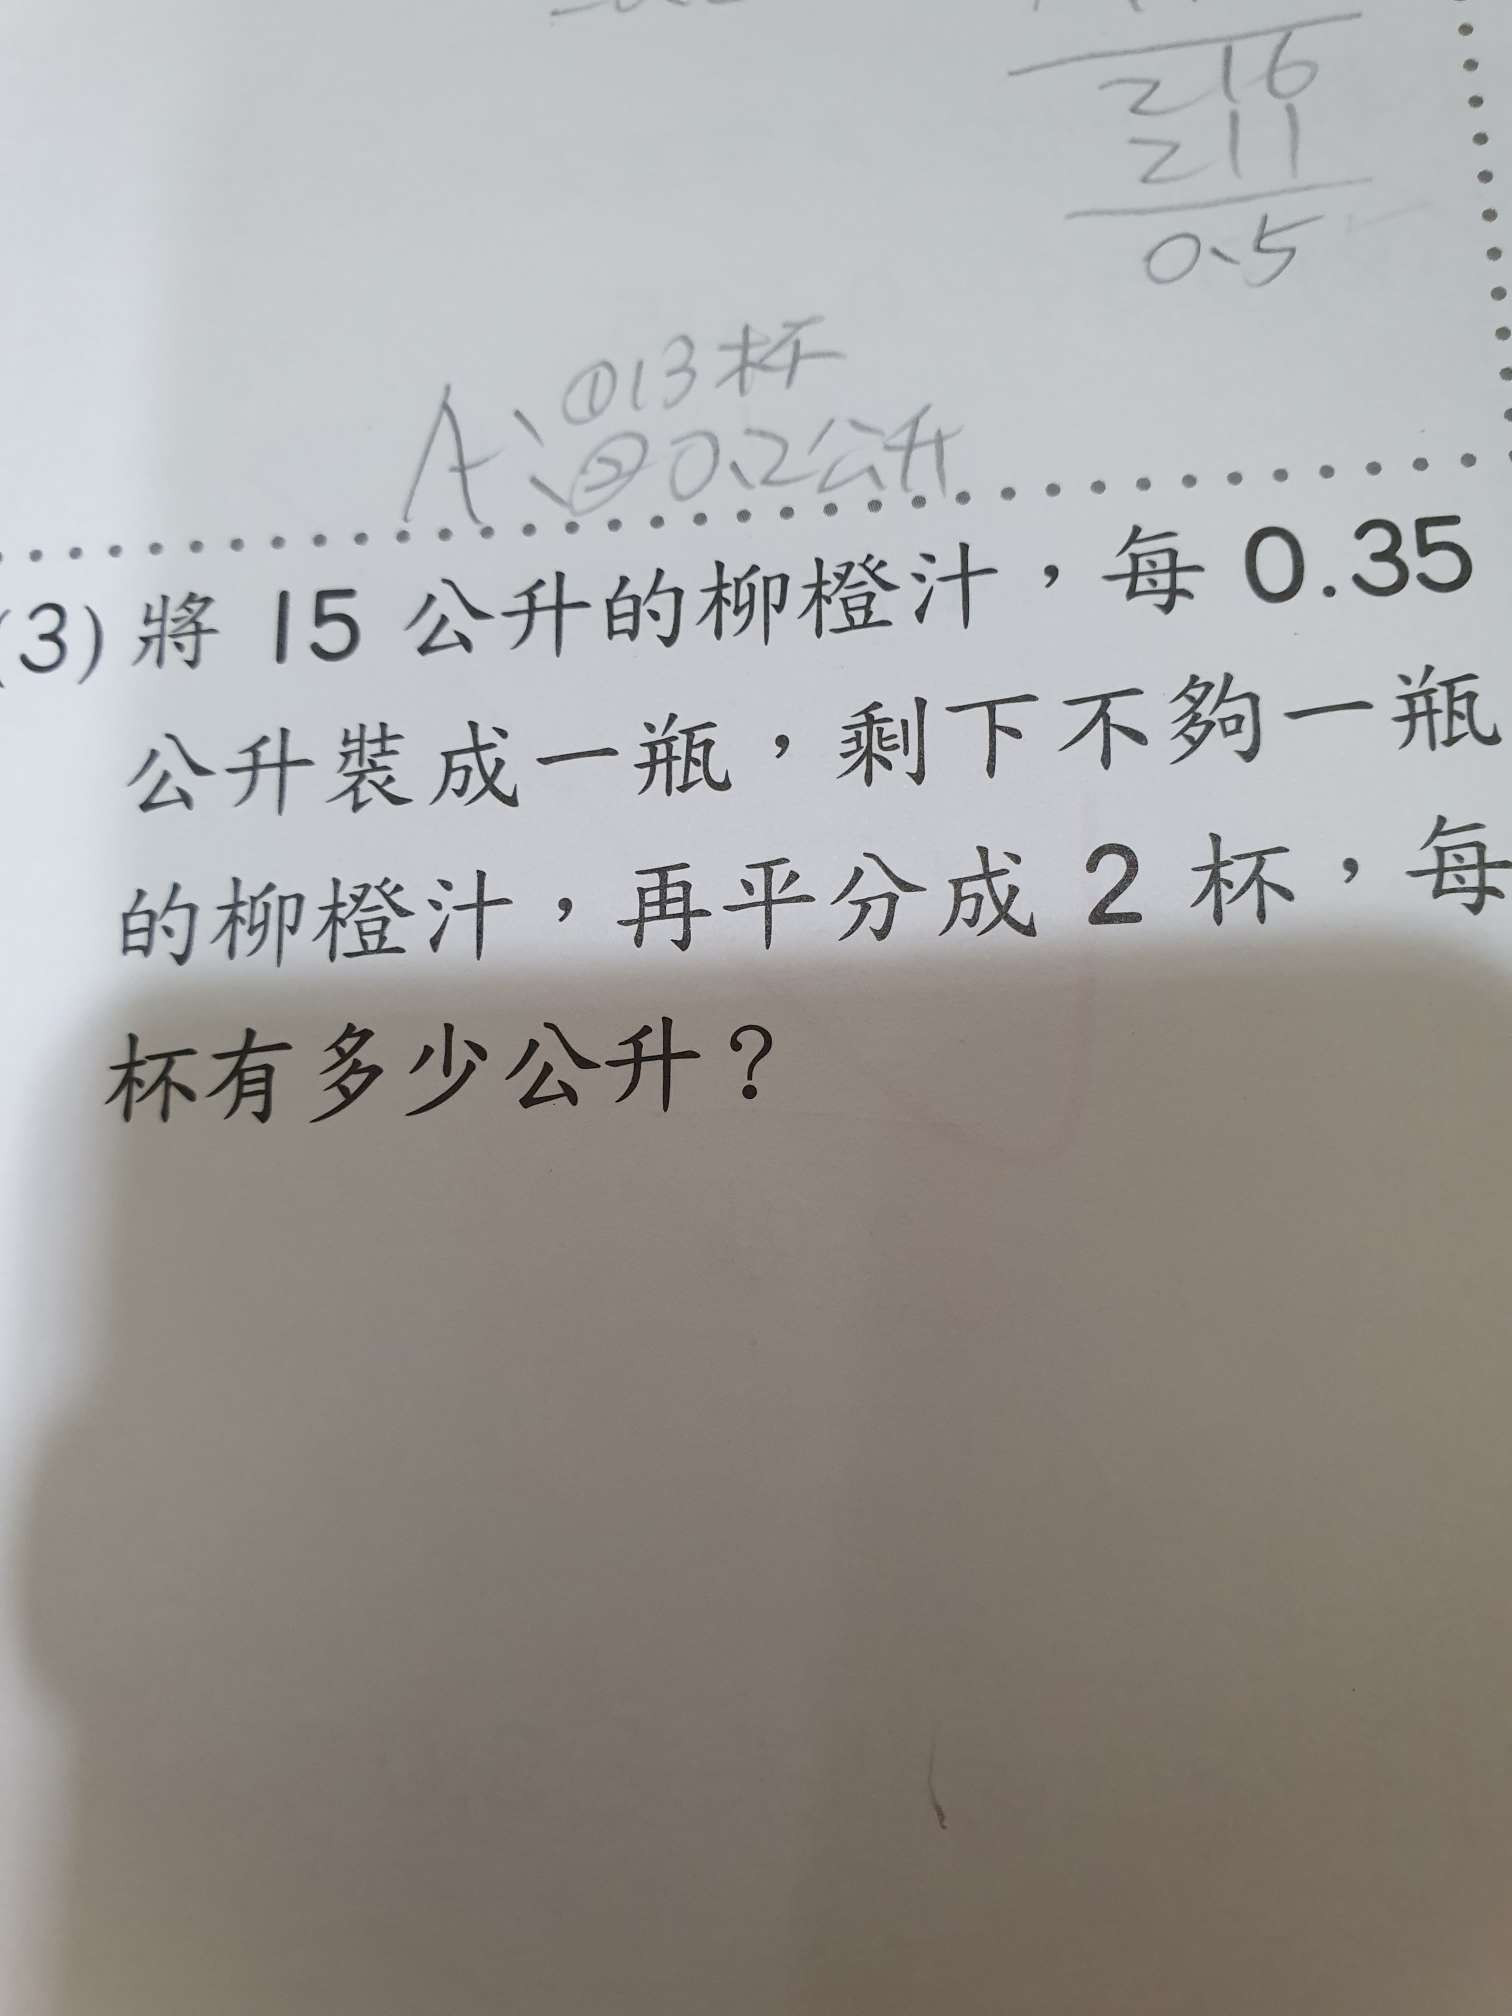 216
211
0.5
A、①13杯
②0.2公升
(3) 將 15 公升的柳橙汁，每 0.35
公升裝成一瓶，剩下不夠一瓶
的柳橙汁，再平分成 2 杯，每
杯有多少公升？